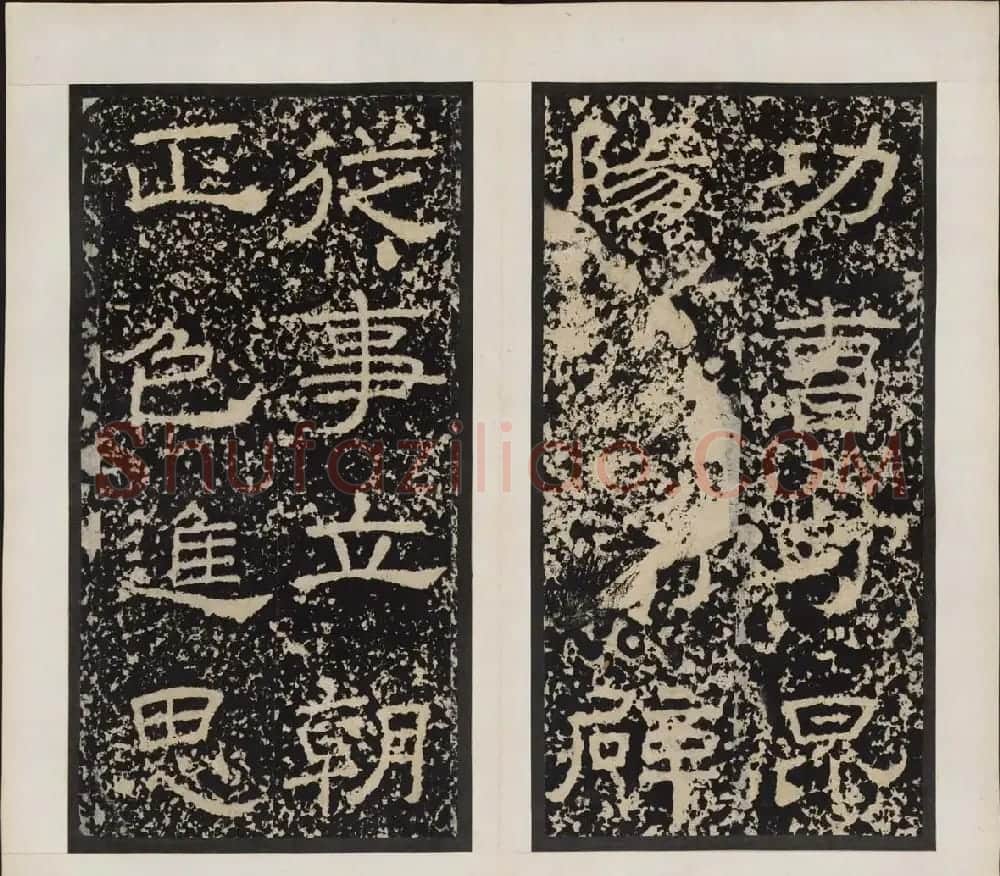 功曹守昆
陽辟
從事立朝
正色進思
Shufaziliao.COM